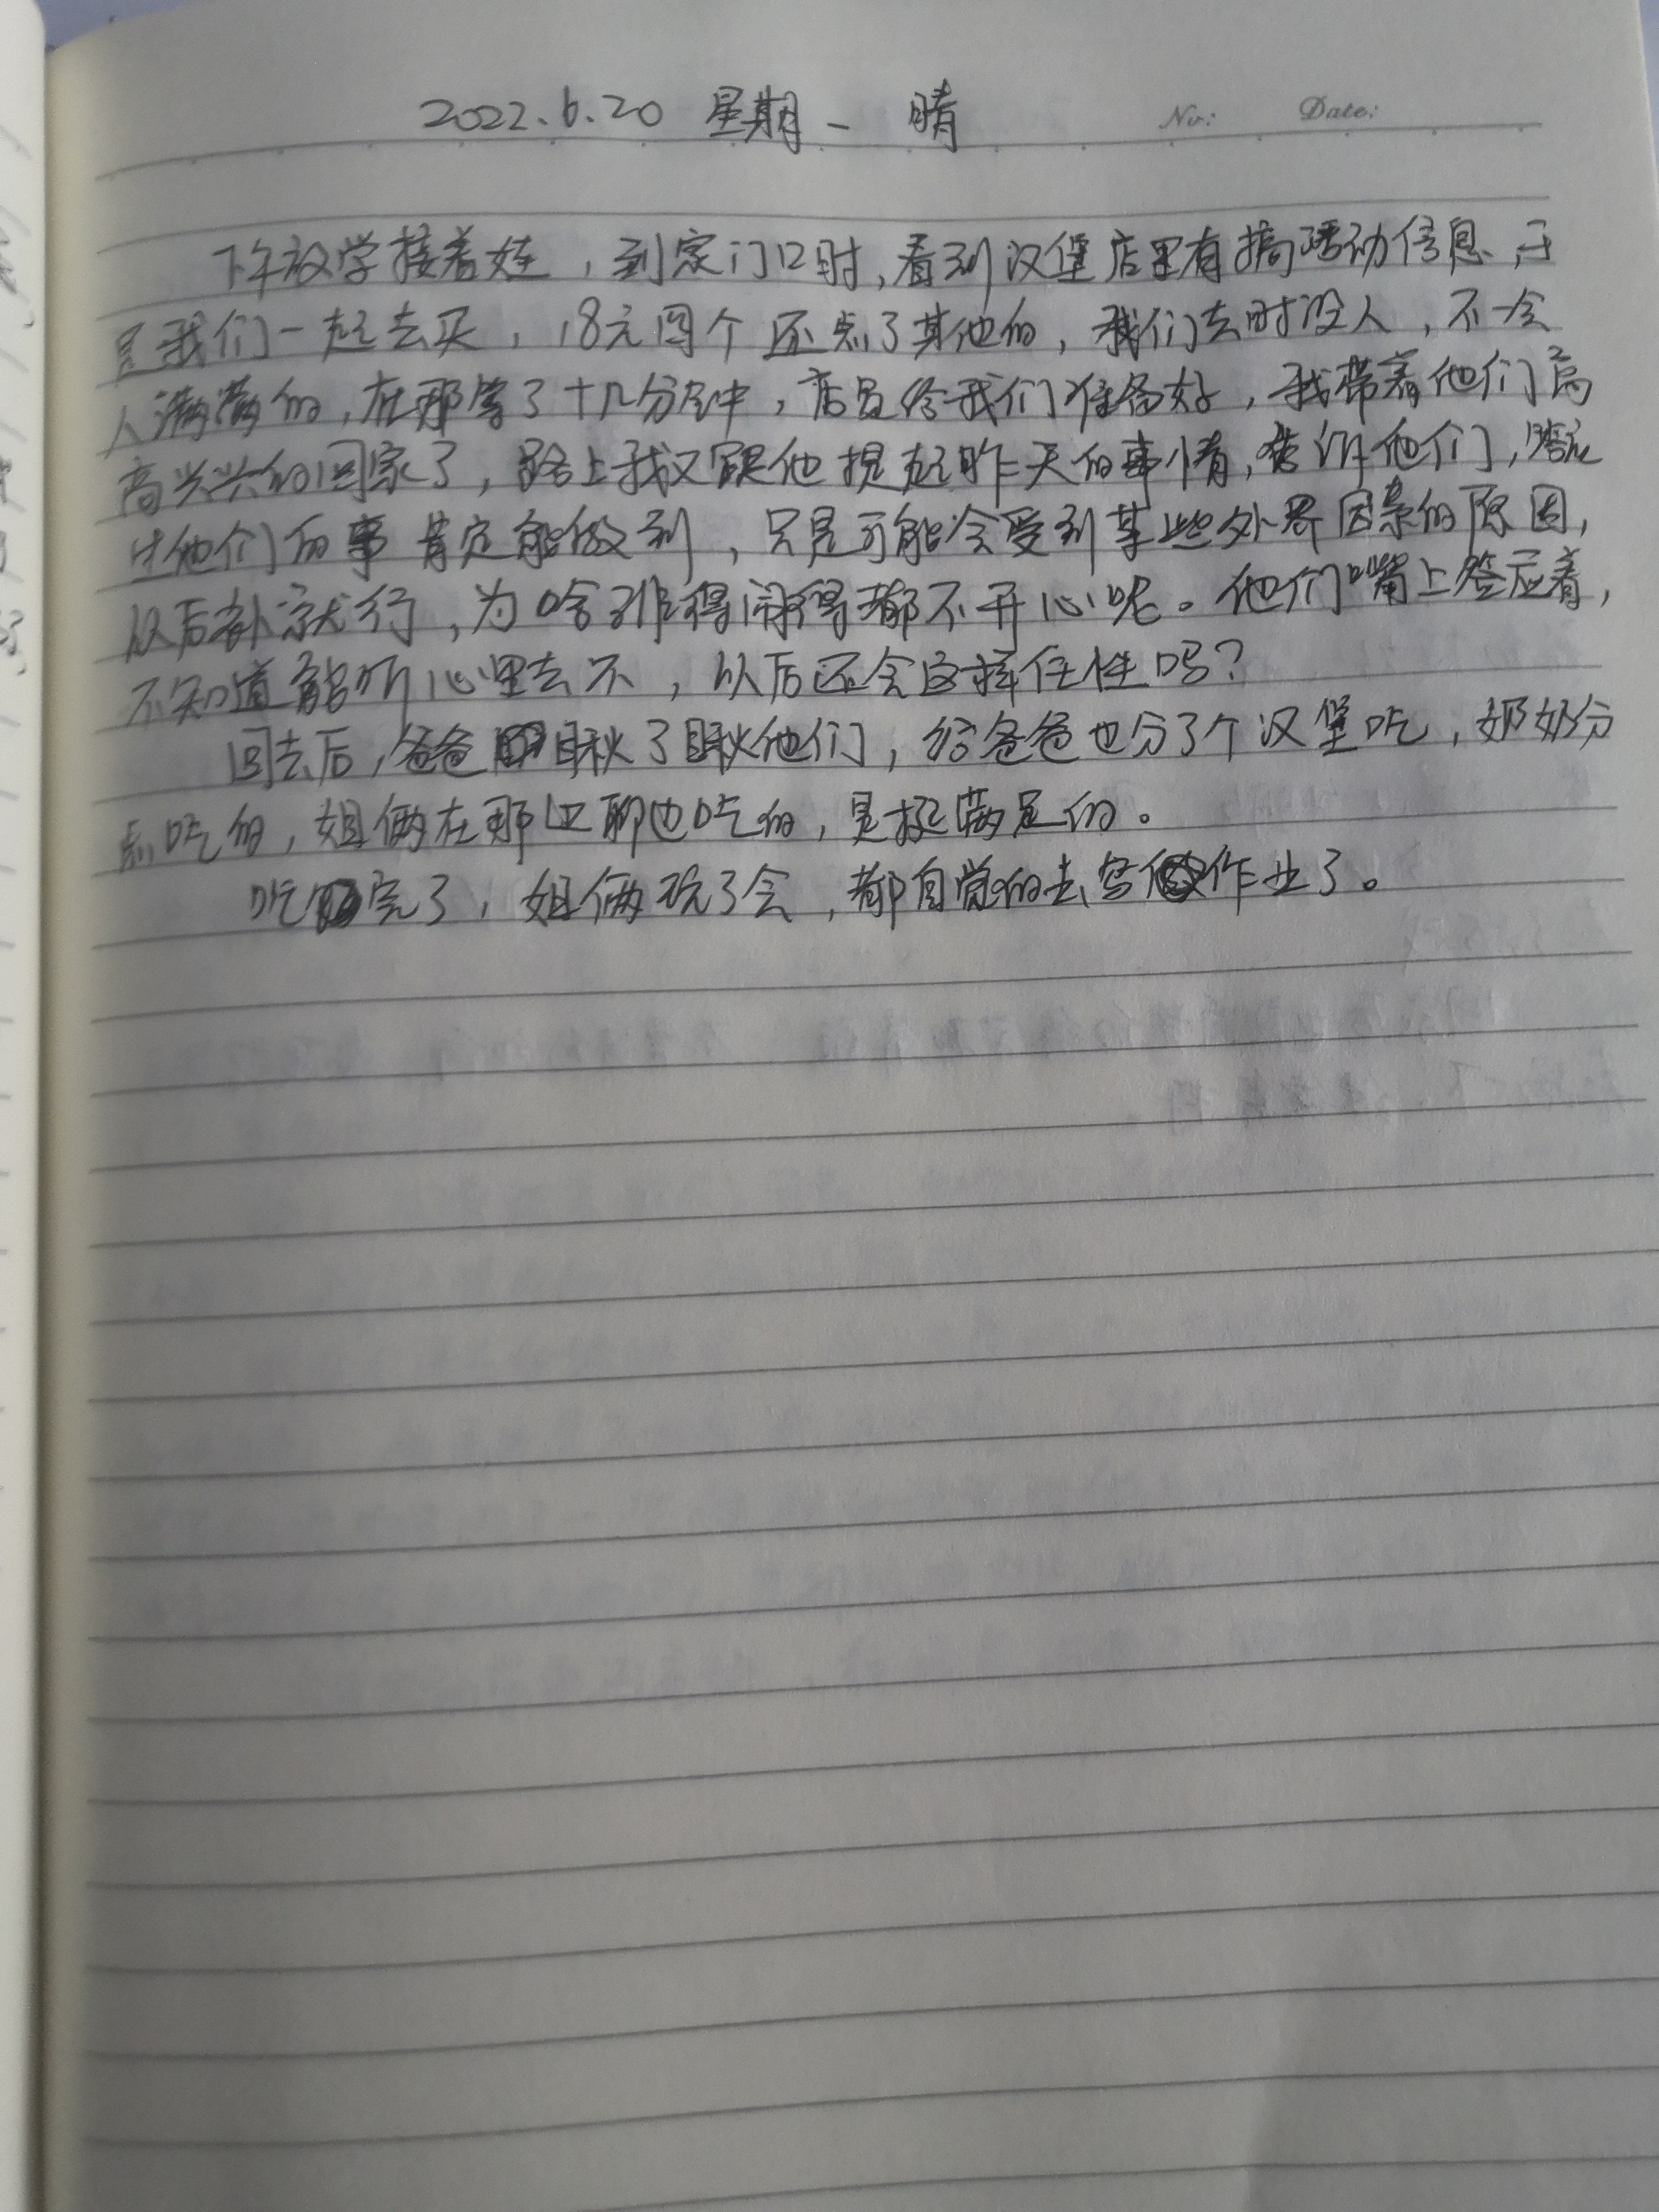 2022.6.20 星期一 晴
No: Date:
下午放学接着娃,到家门口时,看到汉堡店里有搞活动信息,于
是我们一起去买,18元四个还点了其他的,我们去时没人,不一会
人满满的,在那等了十几分钟,店员给我们准备好,我带着他们高
高兴兴的回家了,路上我又跟他提起昨天的事情,告诉他们,答应
他们的事肯定能做到,只是可能会受到某些外界因素的原因,
以后补就行,为啥非得闹得都不开心呢。他们嘴上答应着,
不知道能听心里去不,以后还会这样任性吗?
回去后,爸爸瞅了瞅他们,给爸爸也分了个汉堡吃,奶奶分
点吃的,姐俩在那边聊边吃的,是挺满足的。
吃完了,姐俩玩了会,都自觉的去写作业了。